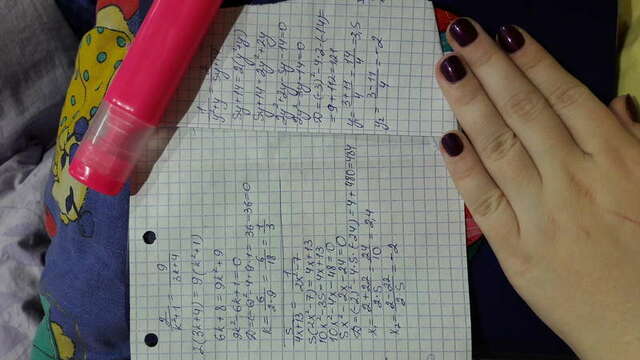 2/(k²+1) = 9/(3k+4)
2(3k+4) = 9(k²+1)
6k+8 = 9k²+9
9k²-6k+1=0
D=(-6)²-4·9·1=36-36=0
k=6/(2·9)=6/18=1/3
5/(4x+13) = 1/(2x²-7)
5(2x²-7)=4x+13
10x²-35=4x+13
10x²-4x-48=0
5x²-2x-24=0
D=(-2)²-4·5·(-24)=4+480=484
x₁=(2+22)/(2·5)=24/10=2,4
x₂=(2-22)/(2·5)=-2
5y+14=2(y²+y)
5y+14=2y²+2y
2y²+2y-5y-14=0
2y²-3y-14=0
D=(-3)²-4·2·(-14)=
=9+112=121
y=(3+11)/4=14/4=3,5
y₂=(3-11)/4=-2